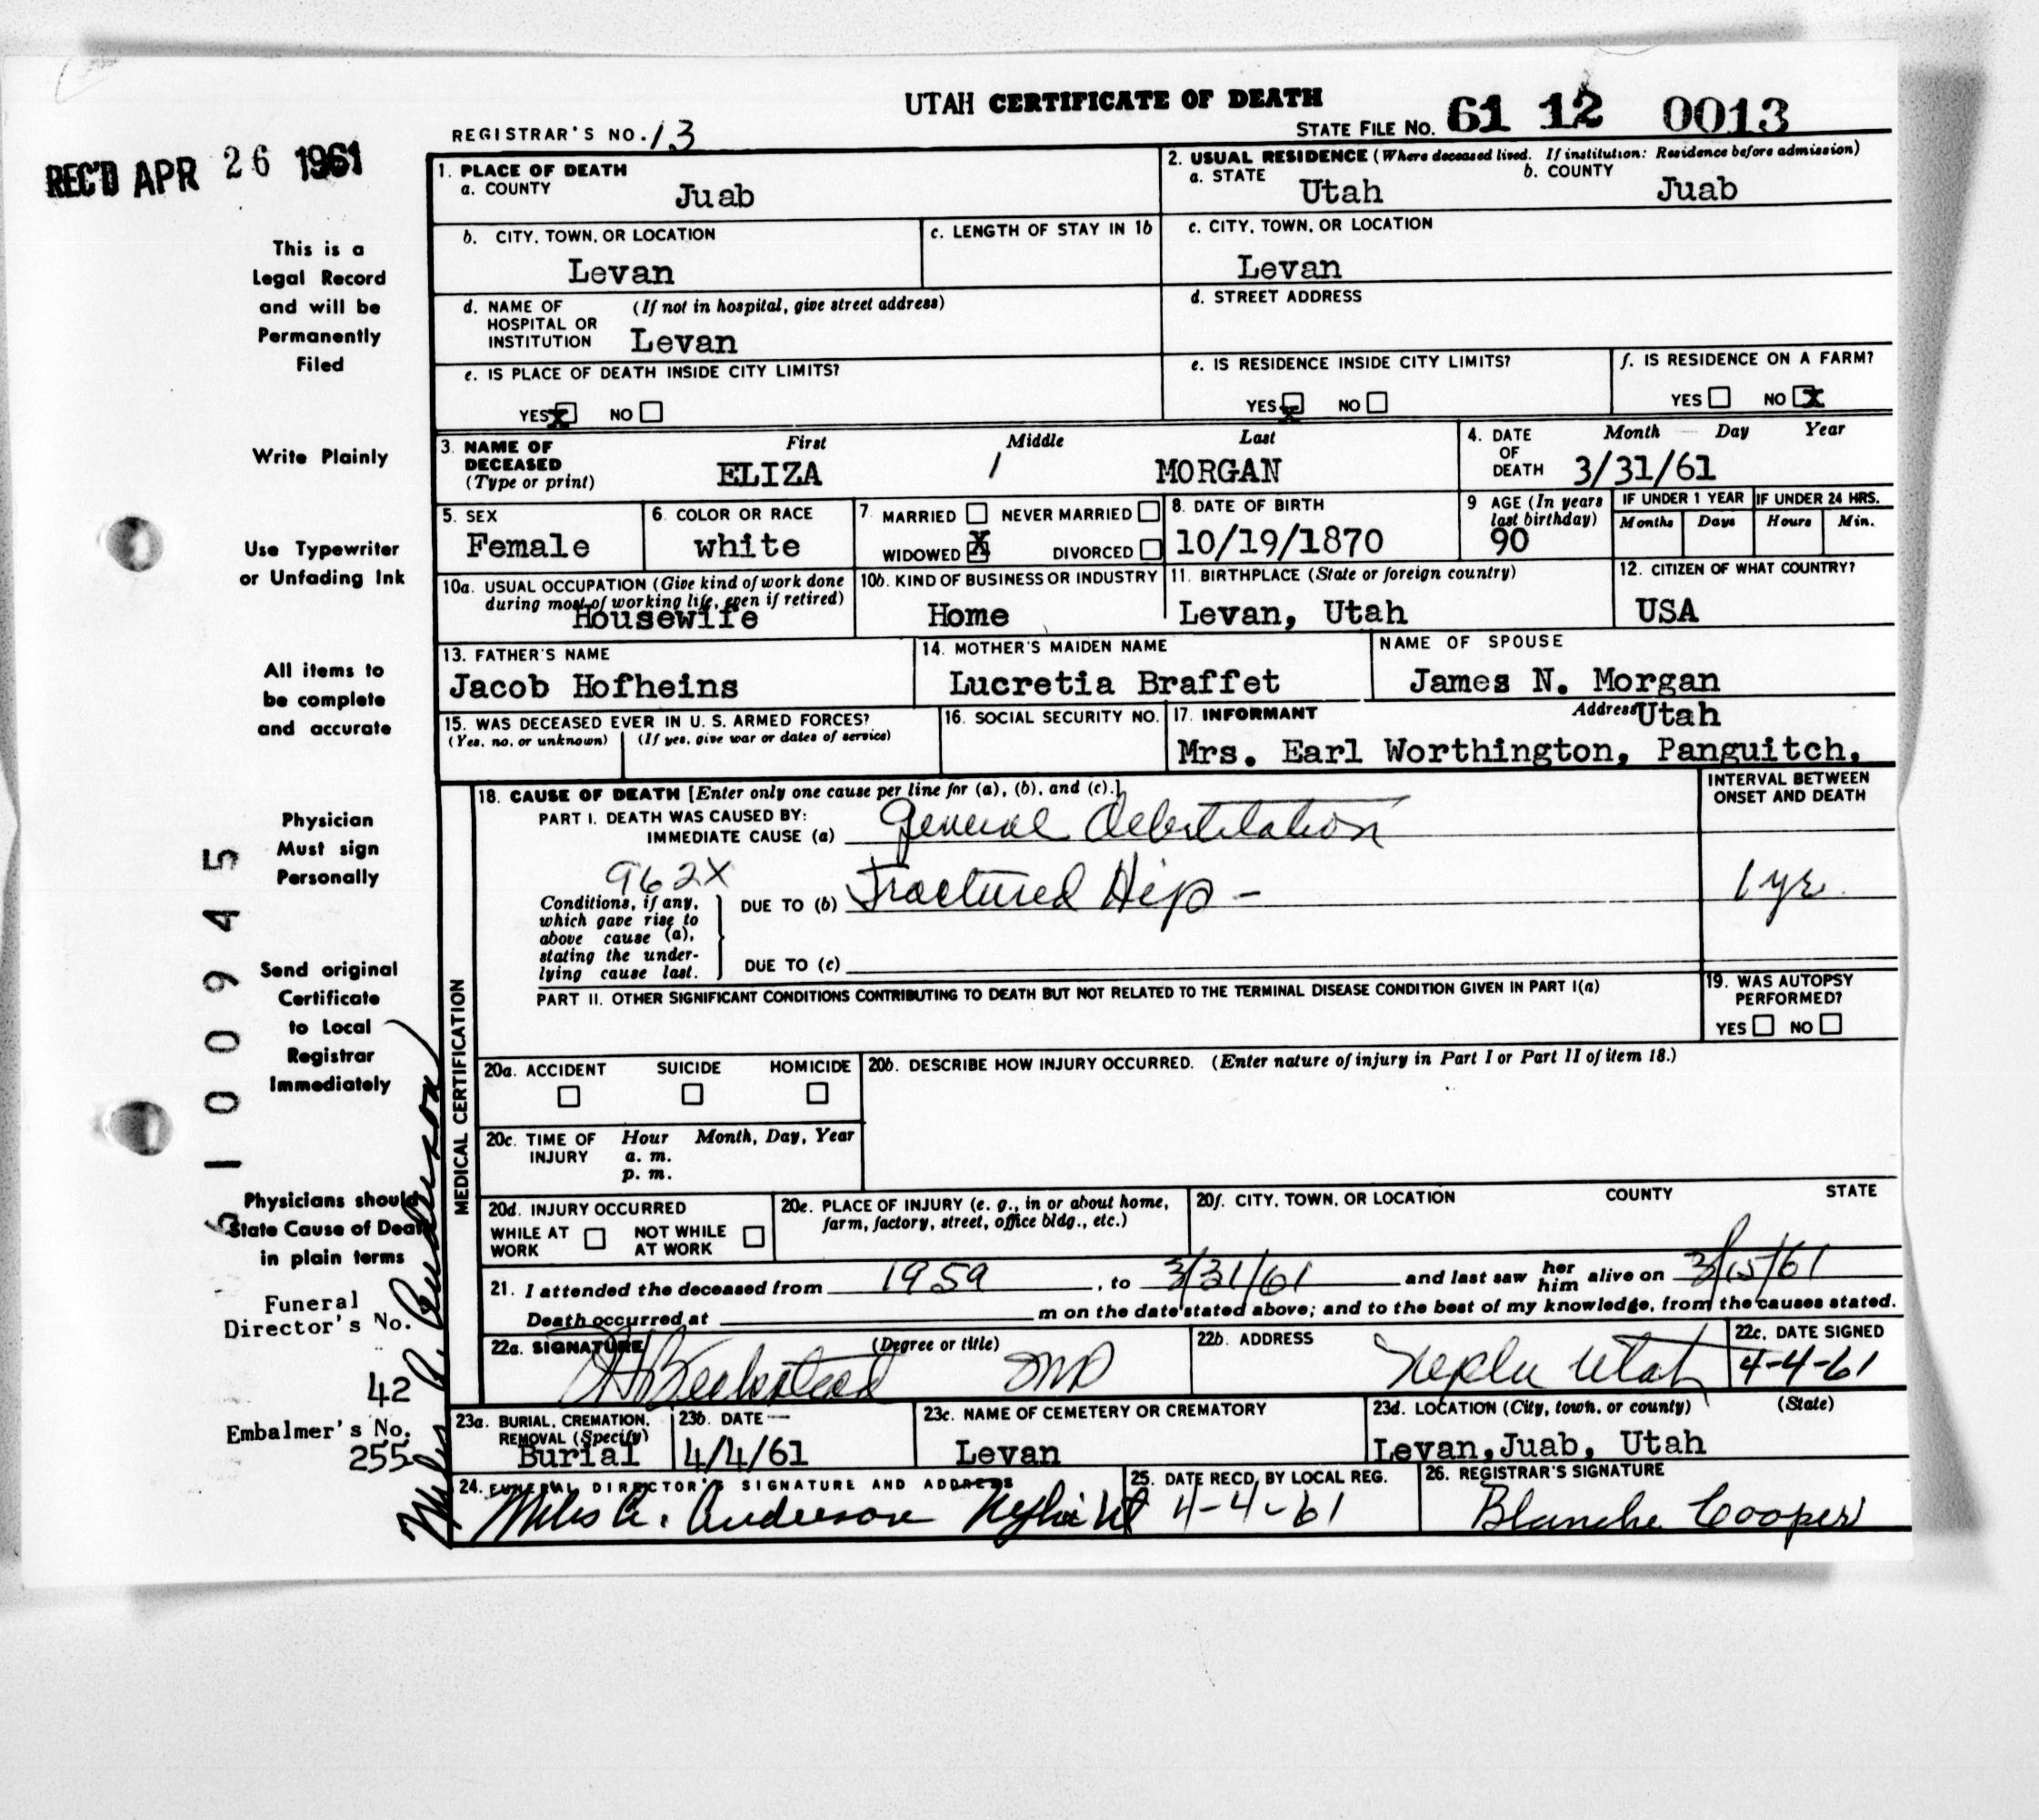 UTAH CERTIFICATE OF DEATH
REGISTRAR'S NO. 13
STATE FILE NO. 61 12 0013
REC'D APR 26 1961
1. PLACE OF DEATH
a. COUNTY
Juab
2. USUAL RESIDENCE (Where deceased lived. If institution: Residence before admission)
a. STATE
Utah
b. COUNTY
Juab
b. CITY, TOWN, OR LOCATION
Levan
c. LENGTH OF STAY IN 1b
c. CITY, TOWN, OR LOCATION
Levan
d. NAME OF HOSPITAL OR INSTITUTION
(If not in hospital, give street address)
Levan
d. STREET ADDRESS
e. IS PLACE OF DEATH INSIDE CITY LIMITS?
YES X NO
e. IS RESIDENCE INSIDE CITY LIMITS?
YES X NO
f. IS RESIDENCE ON A FARM?
YES NO X
3. NAME OF DECEASED (Type or print)
First Middle Last
ELIZA / MORGAN
4. DATE OF DEATH
Month Day Year
3/31/61
5. SEX
Female
6. COLOR OR RACE
white
7. MARRIED NEVER MARRIED
WIDOWED X DIVORCED
8. DATE OF BIRTH
10/19/1870
9 AGE (In years last birthday)
90
IF UNDER 1 YEAR
Months Days
IF UNDER 24 HRS.
Hours Min.
10a. USUAL OCCUPATION (Give kind of work done during most of working life, even if retired)
Housewife
10b. KIND OF BUSINESS OR INDUSTRY
Home
11. BIRTHPLACE (State or foreign country)
Levan, Utah
12. CITIZEN OF WHAT COUNTRY?
USA
13. FATHER'S NAME
Jacob Hofheins
14. MOTHER'S MAIDEN NAME
Lucretia Braffet
NAME OF SPOUSE
James N. Morgan
15. WAS DECEASED EVER IN U. S. ARMED FORCES?
(Yes, no, or unknown) (If yes, give war or dates of service)
16. SOCIAL SECURITY NO.
17. INFORMANT
Address Utah
Mrs. Earl Worthington, Panguitch,
MEDICAL CERTIFICATION
18. CAUSE OF DEATH [Enter only one cause per line for (a), (b), and (c).]
INTERVAL BETWEEN ONSET AND DEATH
PART I. DEATH WAS CAUSED BY:
IMMEDIATE CAUSE (a) General Debilitation
962X
Conditions, if any, which gave rise to above cause (a), stating the underlying cause last.
DUE TO (b) Fractured Hip - 1 yr.
DUE TO (c)
PART II. OTHER SIGNIFICANT CONDITIONS CONTRIBUTING TO DEATH BUT NOT RELATED TO THE TERMINAL DISEASE CONDITION GIVEN IN PART I(a)
19. WAS AUTOPSY PERFORMED?
YES NO
20a. ACCIDENT SUICIDE HOMICIDE
20b. DESCRIBE HOW INJURY OCCURRED. (Enter nature of injury in Part I or Part II of item 18.)
20c. TIME OF INJURY
Hour Month, Day, Year
a. m.
p. m.
20d. INJURY OCCURRED
WHILE AT WORK NOT WHILE AT WORK
20e. PLACE OF INJURY (e. g., in or about home, farm, factory, street, office bldg., etc.)
20f. CITY, TOWN, OR LOCATION COUNTY STATE
21. I attended the deceased from 1959, to 3/31/61 and last saw her him alive on 3/15/61
Death occurred at m on the date stated above; and to the best of my knowledge, from the causes stated.
22a. SIGNATURE (Degree or title)
Beckstead MD
22b. ADDRESS
Nephi Utah
22c. DATE SIGNED
4-4-61
23a. BURIAL, CREMATION, REMOVAL (Specify)
Burial
23b. DATE
4/4/61
23c. NAME OF CEMETERY OR CREMATORY
Levan
23d. LOCATION (City, town, or county) (State)
Levan, Juab, Utah
24. FUNERAL DIRECTOR'S SIGNATURE AND ADDRESS
Miles A. Anderson Nephi Ut
25. DATE RECD. BY LOCAL REG.
4-4-61
26. REGISTRAR'S SIGNATURE
Blanche Cooper
This is a
Legal Record
and will be
Permanently
Filed
Write Plainly
Use Typewriter
or Unfading Ink
All items to
be complete
and accurate
Physician
Must sign
Personally
Send original
Certificate
to Local
Registrar
Immediately
Physicians should
State Cause of Death
in plain terms
Funeral
Director's No.
42
Embalmer's No.
255
Miles A. Anderson
6100945